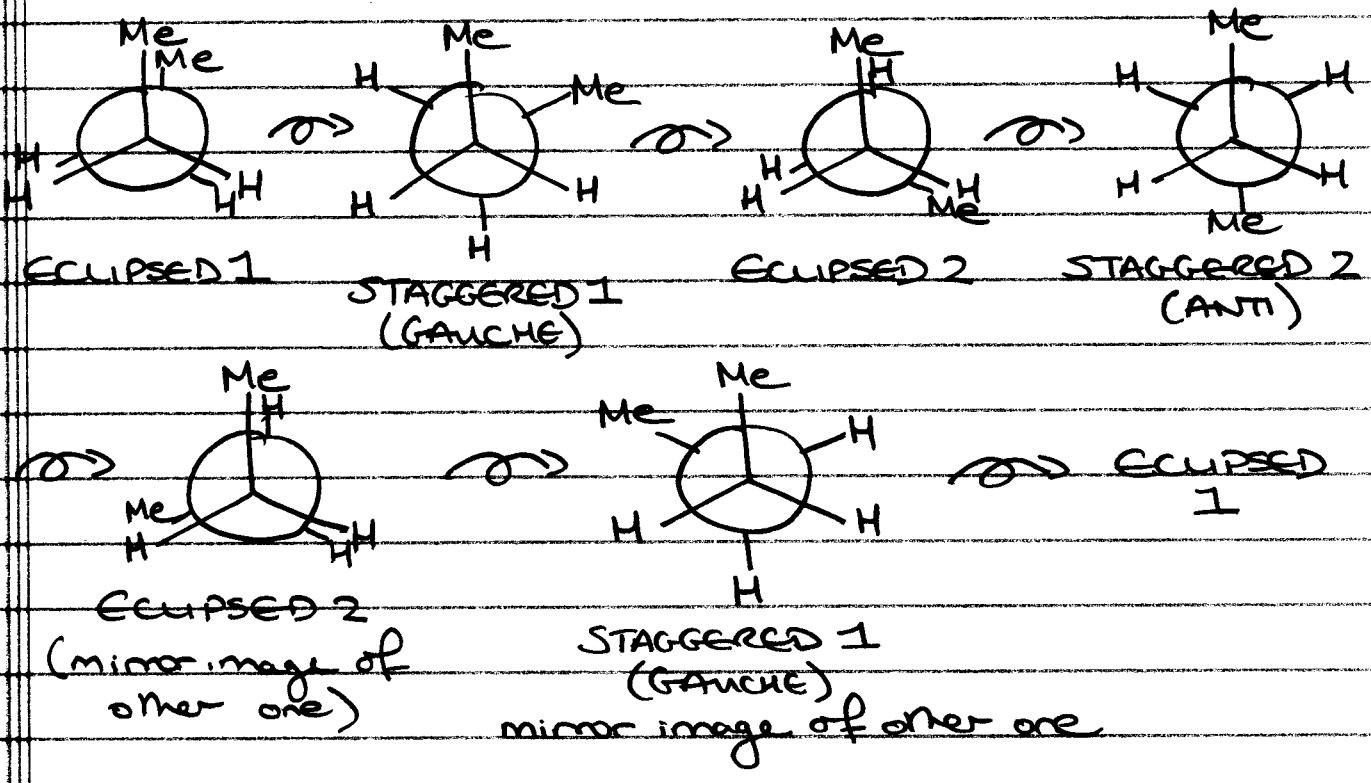 Me
Me
H
H
H
H
ECLIPSED 1
Me
H
Me
H
H
H
STAGGERED 1
(GAUCHE)
Me
H
H
H
H
Me
ECLIPSED 2
Me
H
H
H
H
Me
STAGGERED 2
(ANTI)
Me
H
Me
H
H
H
ECLIPSED 2
(mirror image of
other one)
Me
Me
H
H
H
H
STAGGERED 1
(GAUCHE)
mirror image of other one
ECLIPSED
1